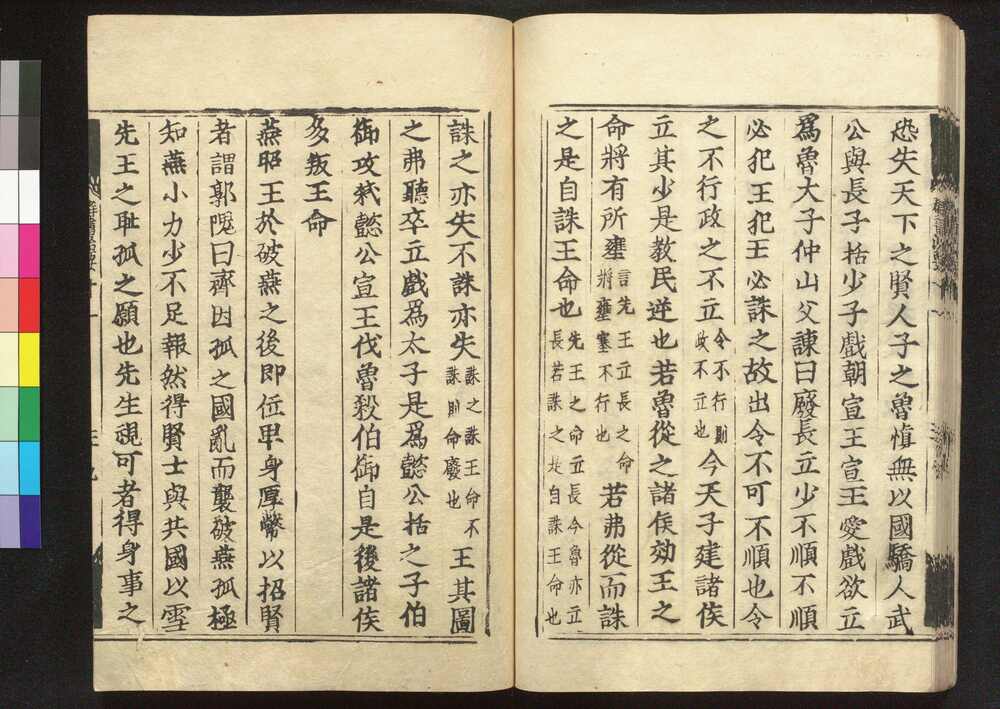 恐失天下之賢人子之魯慎無以國驕人武
公與長子括少子戲朝宣王宣王愛戲欲立
爲魯大子仲山父諫曰廢長立少不順不順
必犯王犯王必誅之故出令不可不順也令
之不行政之不立令不行則政不立也今天子建諸侯
立其少是教民逆也若魯從之諸侯効王之
命將有所壅言先王立長之命將壅塞不行也若弗從而誅
之是自誅王命也先王之命立長今魯亦立長若誅之是自誅王命也
誅之亦失不誅亦失誅之誅王命不誅則命廢也王其圖
之弗聽卒立戲爲太子是爲懿公括之子伯
御攻弒懿公宣王伐魯殺伯御自是後諸侯
多叛王命
燕昭王於破燕之後即位卑身厚幣以招賢
者謂郭隗曰齊因孤之國亂而襲破燕孤極
知燕小力少不足報然得賢士與共國以雪
先王之耻孤之願也先生視可者得身事之